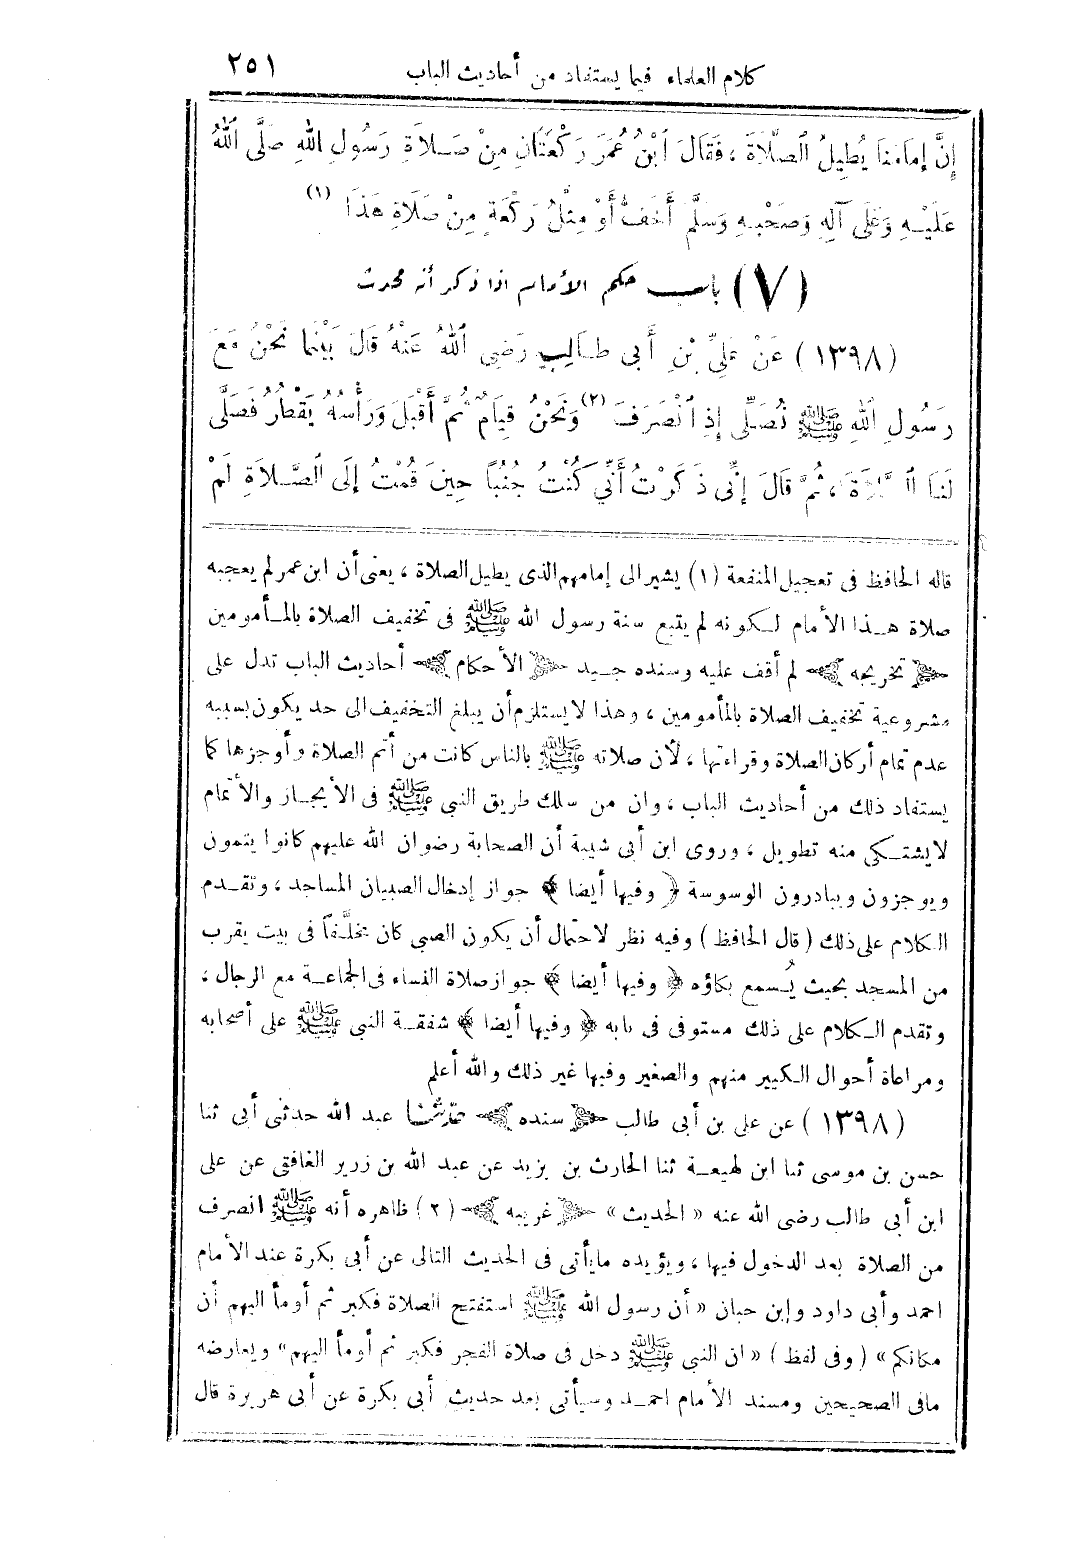 كلام العلماء فيما يستفاد من أحاديث الباب ٢٥١
إِنَّ إِمَامَنَا يُطِيلُ الصَّلَاةَ ، فَقَالَ ابْنُ عُمَرَ رَكْعَتَانِ مِنْ صَلَاةِ رَسُولِ اللهِ صَلَّى اللهُ
عَلَيْهِ وَعَلَى آلِهِ وَصَحْبِهِ وَسَلَّمَ أَخَفُّ أَوْ مِثْلُ رَكْعَةٍ مِنْ صَلَاةِ هَذَا (١)
(٧) باب حكم الأمام اذا ذكر أنه محدث
(١٣٩٨) عَنْ عَلِيِّ بْنِ أَبِي طَالِبٍ رَضِيَ اللهُ عَنْهُ قَالَ بَيْنَمَا نَحْنُ مَعَ
رَسُولِ اللهِ ﷺ نُصَلِّي إِذِ انْصَرَفَ (٢) وَنَحْنُ قِيَامٌ ثُمَّ أَقْبَلَ وَرَأْسُهُ يَقْطُرُ فَصَلَّى
لَنَا الصَّلَاةَ ، ثُمَّ قَالَ إِنِّي ذَكَرْتُ أَنِّي كُنْتُ جُنُبًا حِينَ قُمْتُ إِلَى الصَّلَاةِ لَمْ
قاله الحافظ فى تعجيل المنفعة (١) يشير الى إمامهم الذى يطيل الصلاة ، يعنى أن ابن عمر لم يعجبه
صلاة هذا الأمام لكونه لم يتبع سنة رسول الله ﷺ فى تخفيف الصلاة بالمأمومين
﴿ تخريجه ﴾ لم أقف عليه وسنده جيد ﴿ الأحكام ﴾ أحاديث الباب تدل على
مشروعية تخفيف الصلاة بالمأمومين ، وهذا لا يستلزم أن يبلغ التخفيف الى حد يكون بسببه
عدم تمام أركان الصلاة وقراءتها ، لأن صلاته ﷺ بالناس كانت من أتم الصلاة وأوجزها كما
يستفاد ذلك من أحاديث الباب ، وان من سلك طريق النبي ﷺ فى الأيجاز والأتمام
لا يشتكى منه تطويل ، وروى ابن أبى شيبة أن الصحابة رضوان الله عليهم كانوا يتمون
ويوجزون ويبادرون الوسوسة ﴿ وفيها أيضا ﴾ جواز إدخال الصبيان المساجد ، وتقدم
الكلام على ذلك (قال الحافظ) وفيه نظر لاحتمال أن يكون الصبى كان مخلَّفاً فى بيت يقرب
من المسجد بحيث يُسمع بكاؤه ﴿ وفيها أيضا ﴾ جواز صلاة النساء فى الجماعة مع الرجال ،
وتقدم الكلام على ذلك مستوفى فى بابه ﴿ وفيها أيضا ﴾ شفقة النبى ﷺ على أصحابه
ومراعاة أحوال الكبير منهم والصغير وفيها غير ذلك والله أعلم
(١٣٩٨) عن على بن أبى طالب ﴿ سنده ﴾ حدثنا عبد الله حدثنى أبى ثنا
حسن بن موسى ثنا ابن لهيعة ثنا الحارث بن يزيد عن عبد الله بن زرير الغافقى عن على
ابن أبى طالب رضى الله عنه « الحديث » ﴿ غريبه ﴾ (٢) ظاهره أنه ﷺ انصرف
من الصلاة بعد الدخول فيها ، ويؤيده ما يأتى فى الحديث التالى عن أبى بكرة عند الأمام
احمد وأبى داود وابن حبان « أن رسول الله ﷺ استفتح الصلاة فكبر ثم أومأ اليهم أن
مكانكم » (وفى لفظ) « ان النبى ﷺ دخل فى صلاة الفجر فكبر ثم أومأ اليهم » ويعارضه
مافى الصحيحين ومسند الأمام احمد وسيأتى بعد حديث أبى بكرة عن أبى هريرة قال